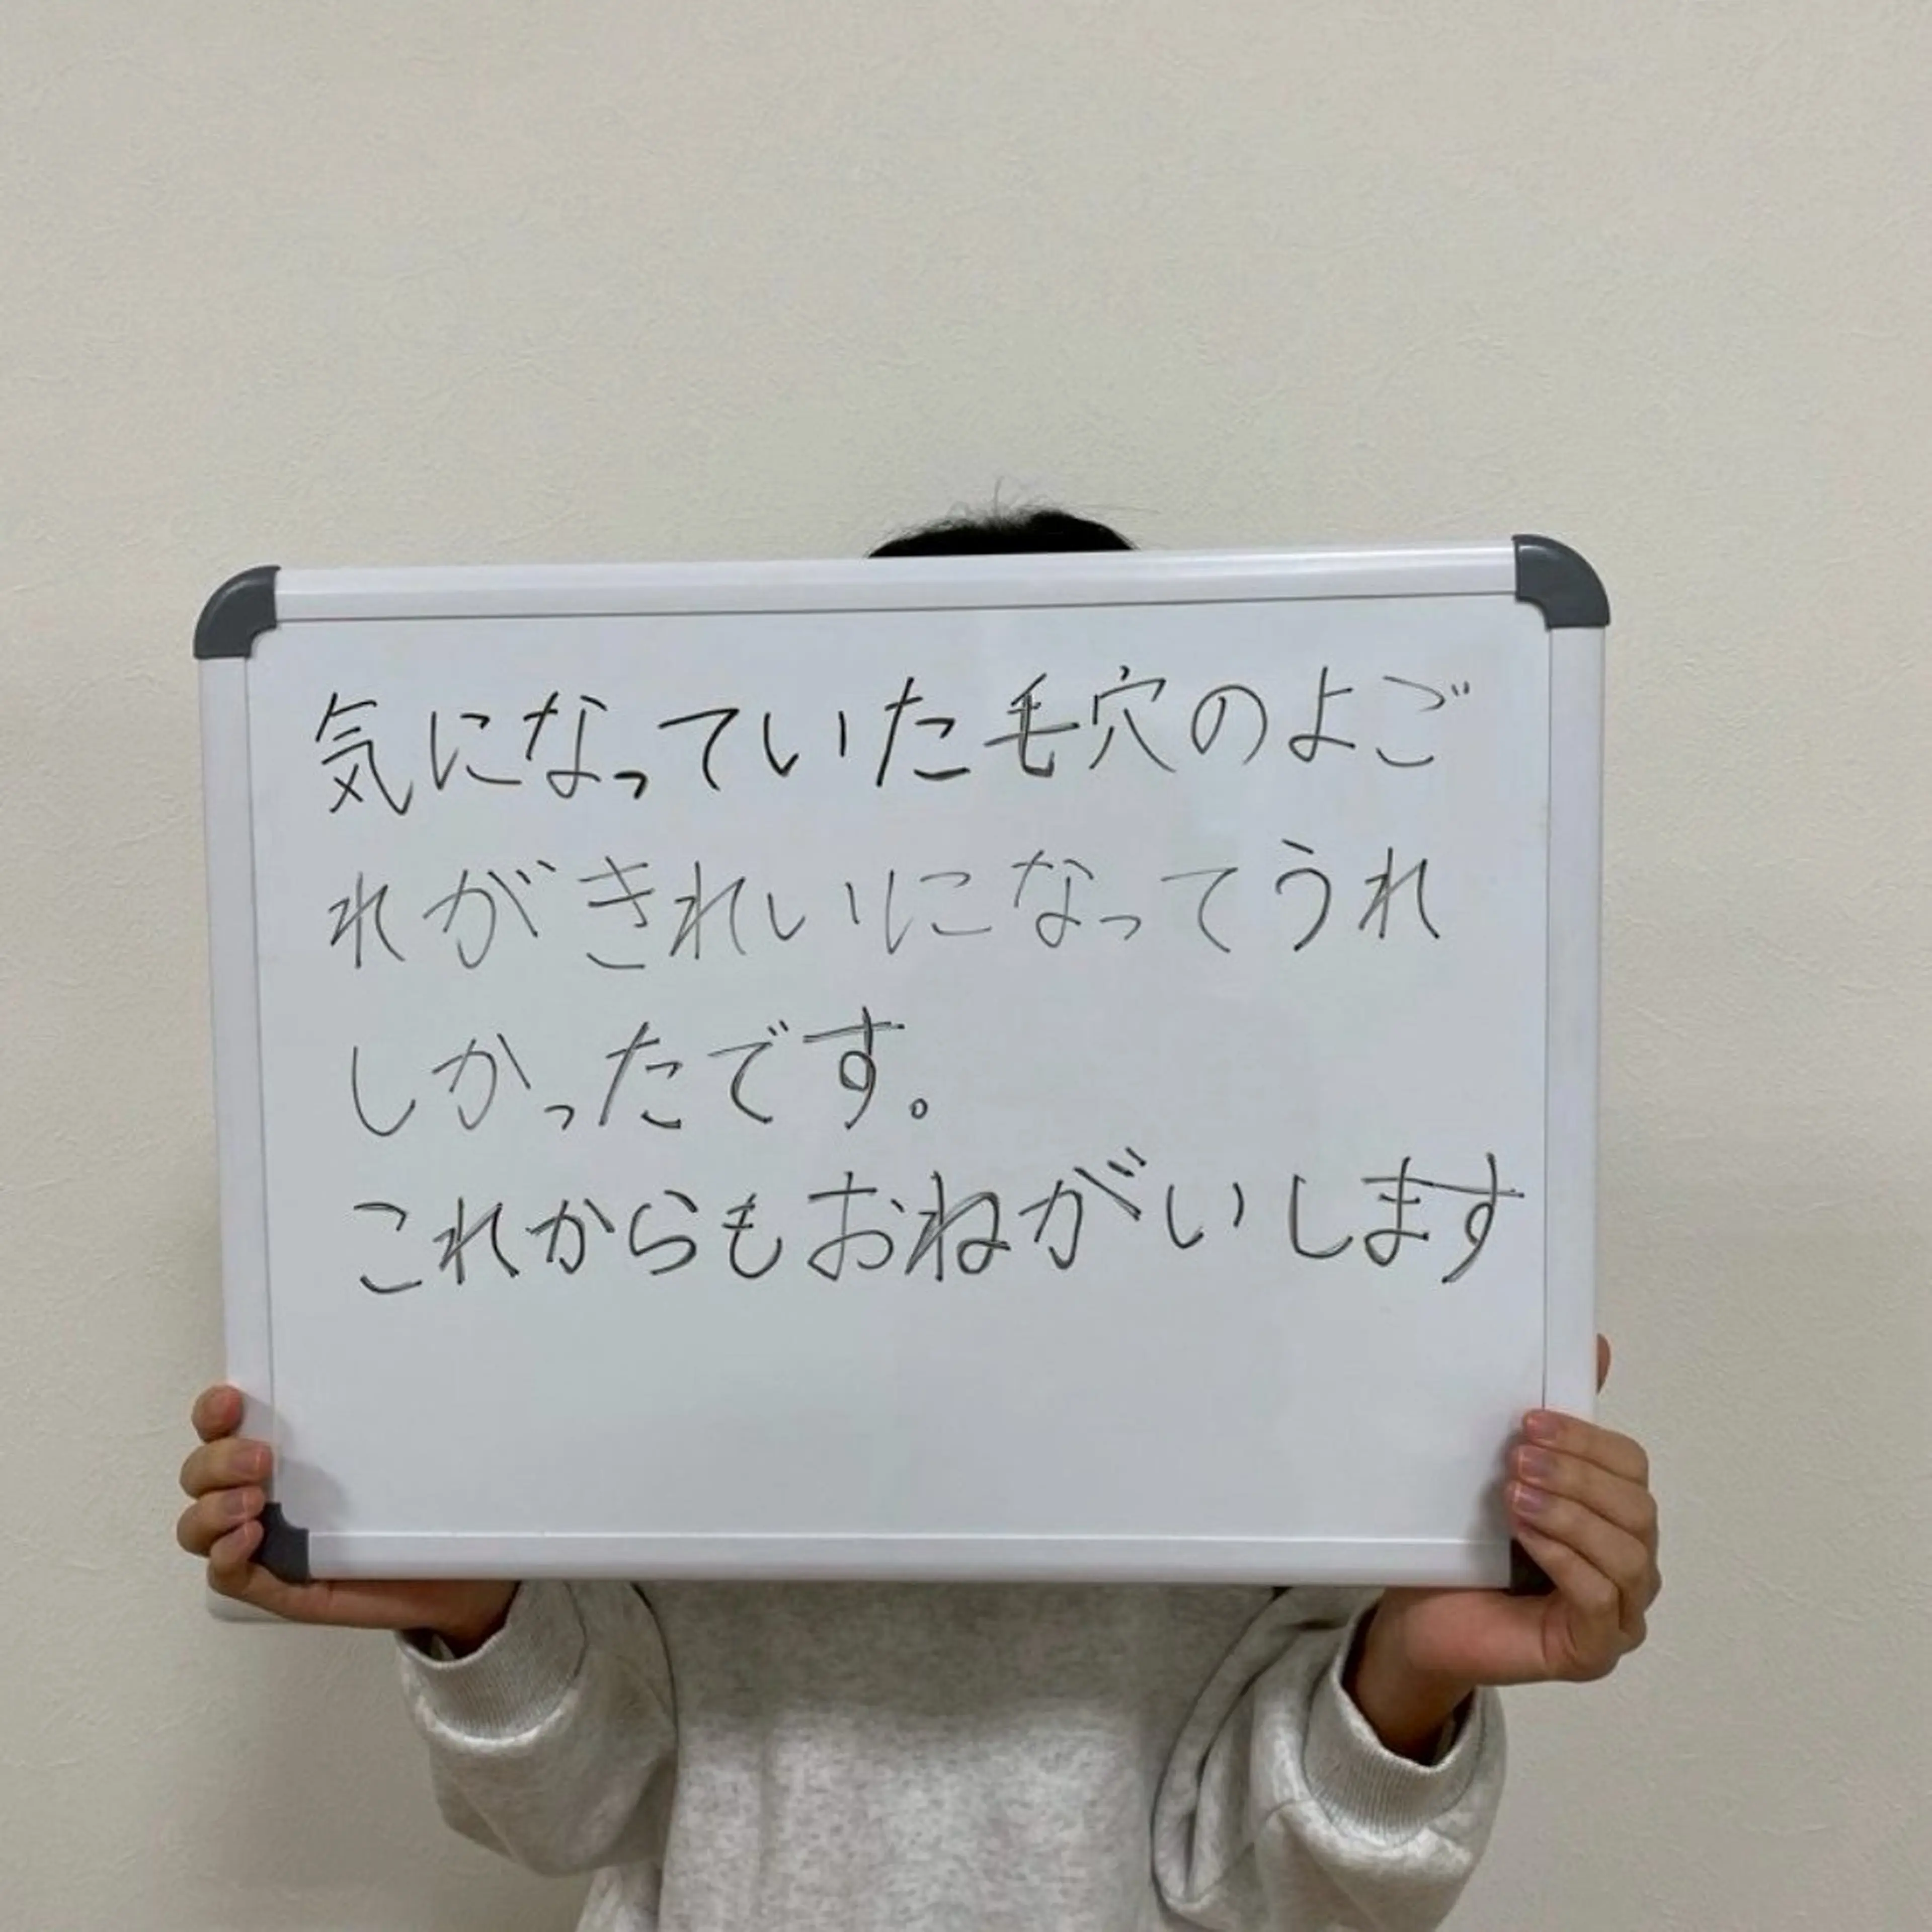 気になっていた毛穴のよご
れがきれいになってうれ
しかったです。
これからもおねがいします